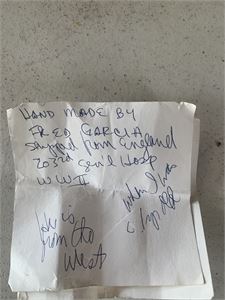 HAND MADE BY
FRED GARCIA
shipped from England
203rd Gen'l Hosp
WW II
when I was
6 mo old
He is
from the
West